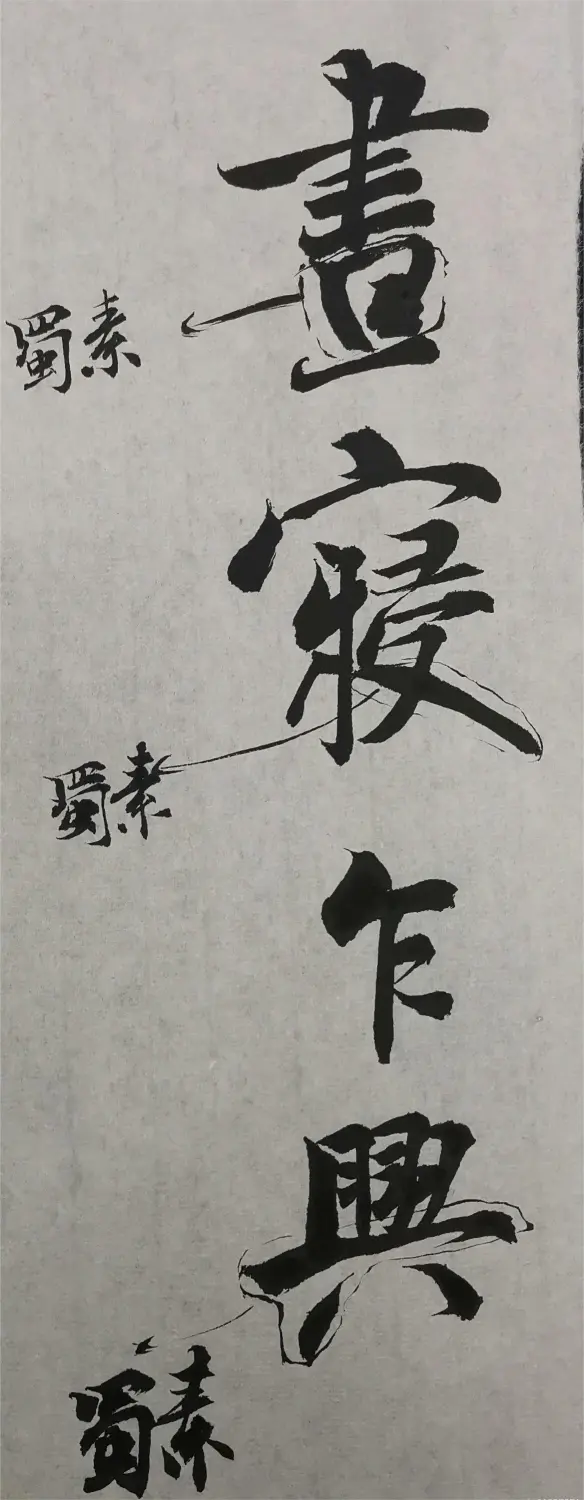 晝寢乍興
蜀素
蜀素
蜀素